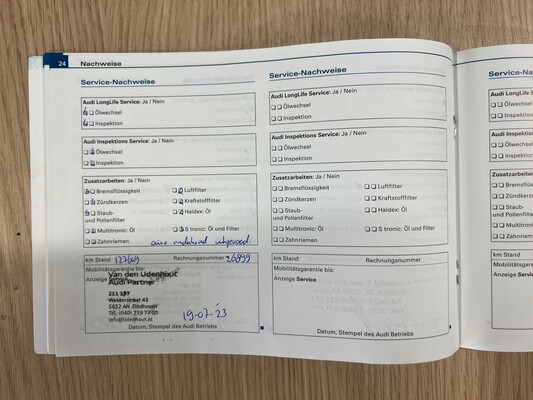 24 Nachweise
Service-Nachweise
Audi LongLife Service: Ja / Nein
Ölwechsel
Inspektion
Audi Inspektions Service: Ja / Nein
Ölwechsel
Inspektion
Zusatzarbeiten: Ja / Nein
Bremsflüssigkeit Luftfilter
Zündkerzen Kraftstofffilter
Staub- Haldex: Öl
und Pollenfilter
Multitronic: Öl S tronic: Öl und Filter
Zahnriemen airco onderhoud uitgevoerd
km Stand Rechnungsnummer 26899
Mobilitätsgarantie bis:
Anzeige Service
Van den Udenhout
Audi Partner
5652 AN Eindhoven
19-07-'23
Datum, Stempel des Audi Betriebs
Service-Nachweise
Audi LongLife Service: Ja / Nein
Ölwechsel
Inspektion
Audi Inspektions Service: Ja / Nein
Ölwechsel
Inspektion
Zusatzarbeiten: Ja / Nein
Bremsflüssigkeit Luftfilter
Zündkerzen Kraftstofffilter
Staub- Haldex: Öl
und Pollenfilter
Multitronic: Öl S tronic: Öl und Filter
Zahnriemen
km Stand Rechnungsnummer
Mobilitätsgarantie bis:
Anzeige Service
Datum, Stempel des Audi Betriebs
Service-Na
Audi LongLife
Ölwechsel
Inspektion
Audi Inspektion
Ölwechsel
Inspektion
Zusatzarbeiten
Bremsflüss
Zündkerzen
Staub-
und Pollenfilter
Multitronic
Zahnriemen
km Stand
Mobilitätsgaran
Anzeige Servic